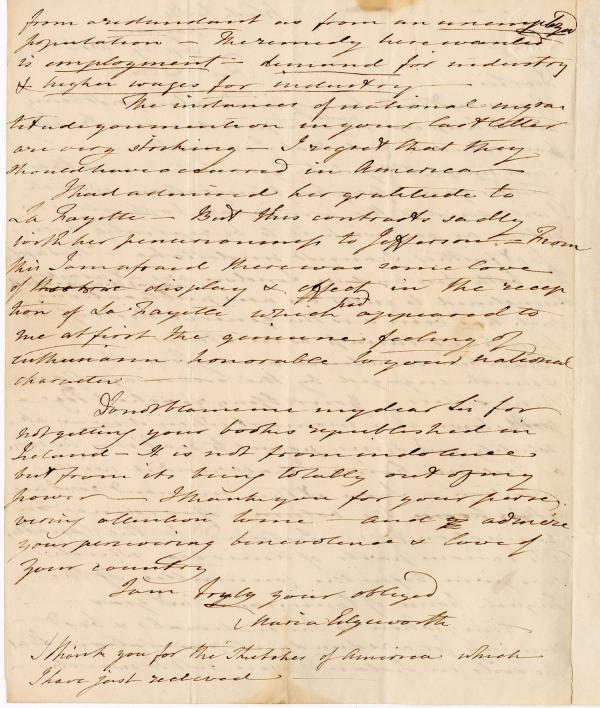 from a redundant as from an unemployed
population — The remedy here wanted
is employment — demand for industry
& higher wages for industry —
The instances of national ingra
titude you mention in your last letter
are very striking — I regret that they
should have occurred in America —
I had admired her gratitude to
La Fayette — But this contrasts sadly
with her penuriousness to Jefferson. — From
this I am afraid there was some love
of display & effect in the recep
tion of La Fayette which had appeared to
me at first the genuine feeling of
enthusiasm honorable to your national
character —
Do not blame me my dear Sir for
not getting your books republished in
Ireland — It is not from indolence
but from its being totally out of my
power — I thank you for your perse
vering attention to me — and admire
your persevering benevolence & love of
your country
I am truly your obliged
Maria Edgeworth
I thank you for the "Sketches of America which
I have just received —